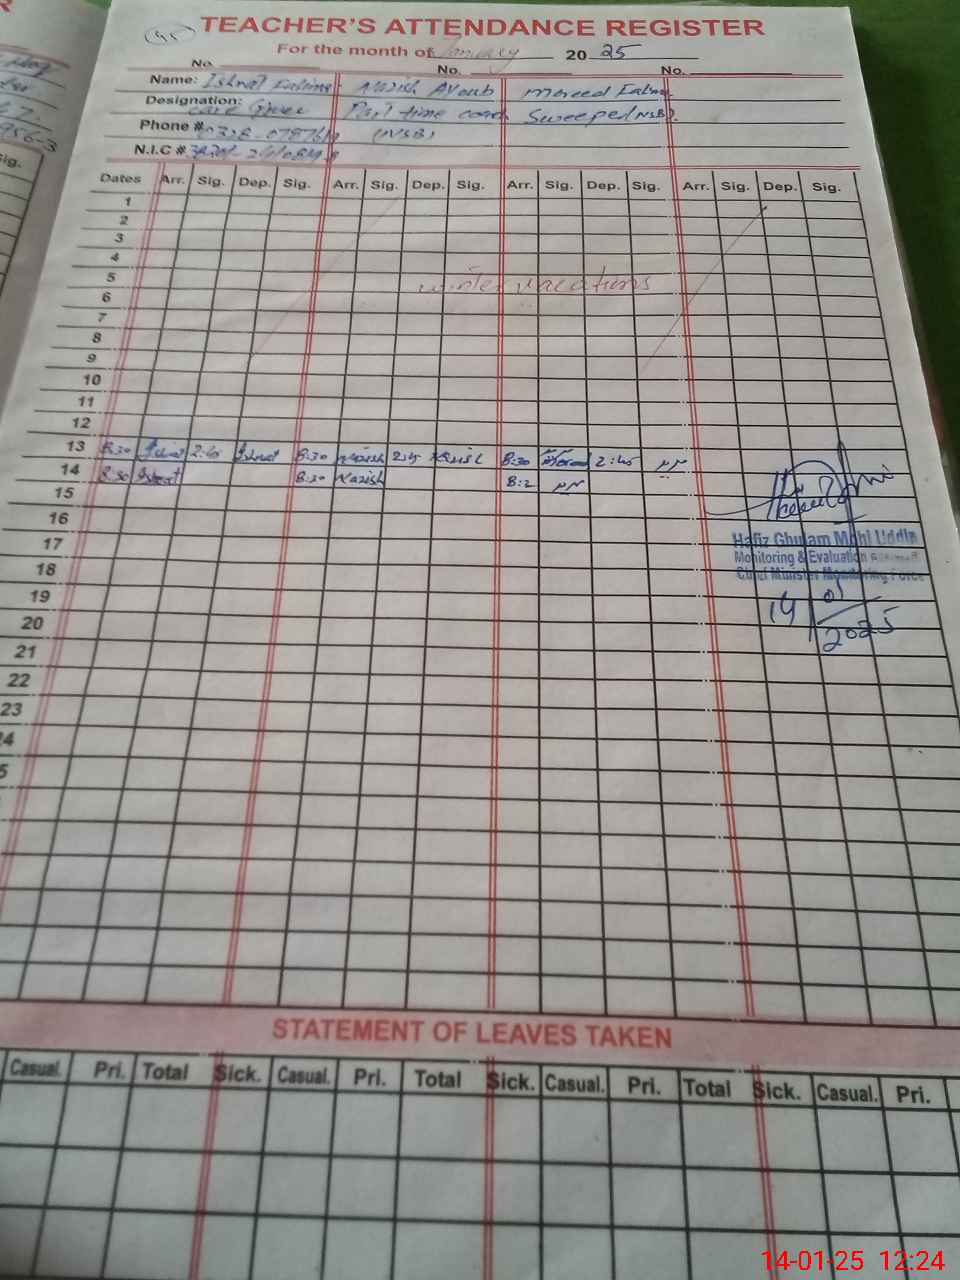 TEACHER'S ATTENDANCE REGISTER
For the month of January 2025
No. No. No.
Name: Ishrat Fatima Nazish Ayoub
Designation: care Giver Part time coach Sweeper (NSB).
Phone # (NSB)
N.I.C #
Dates Arr. Sig. Dep. Sig. Arr. Sig. Dep. Sig. Arr. Sig. Dep. Sig. Arr. Sig. Dep. Sig.
1
2
3
4
5 winter vacations
6
7
8
9
10
11
12
13 8:30 Ishrat 2:45 Ishrat 8:30 Nazish 2:45 Nazish 8:30 2:45
14 8:30 Ishrat 8:30 Nazish
15
16
17 Hafiz Ghulam Mohi Uddin
Monitoring & Evaluation
18 Chief Minister Monitoring Force
19 14/01/2025
20
21
22
23
24
5
STATEMENT OF LEAVES TAKEN
Casual. Pri. Total Sick. Casual. Pri. Total Sick. Casual. Pri. Total Sick. Casual. Pri.
14-01-25 12:24